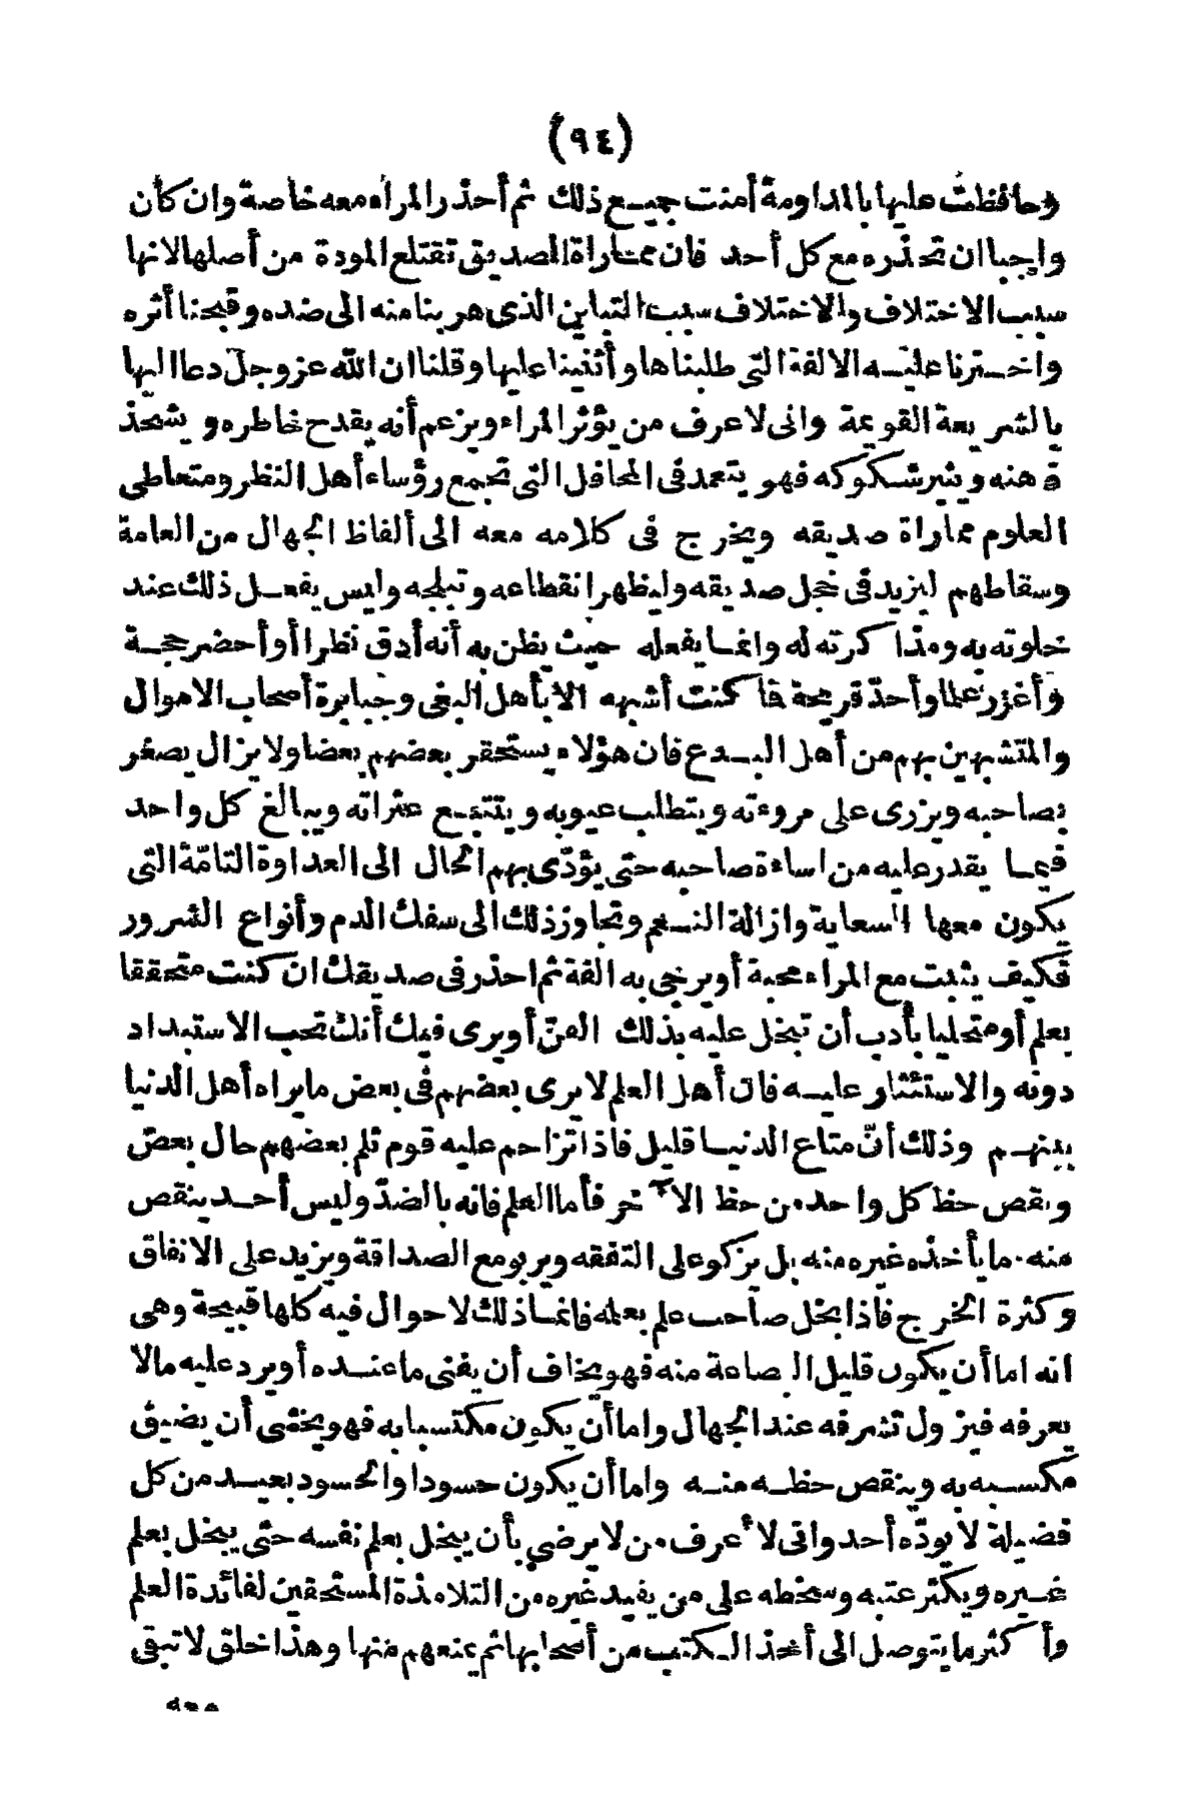 (٩٤)
وحافظت عليها بالمداومة أمنت جميع ذلك ثم أحذر المراء معه خاصة وان كان
واجبا ان تحذره مع كل أحد فان مماراة الصديق تقتلع المودة من أصلها لانها
سبب الاختلاف والاختلاف سبب التباين الذى هربنا منه الى ضده وقبحنا أثره
واخترنا عليه الالفة التى طلبناها وأثنينا عليها وقلنا ان الله عز وجل دعا اليها
بالشريعة القويمة وانى لاعرف من يؤثر المراء ويزعم أنه يقدح خاطره ويشحذ
ذهنه ويثير شكوكه فهو يتعمد فى المحافل التى تجمع رؤساء أهل النظر ومتعاطى
العلوم مماراة صديقه ويخرج فى كلامه معه الى ألفاظ الجهال من العامة
وسقاطهم ليزيد فى خجل صديقه وليظهر انقطاعه وتبلجه وليس يفعل ذلك عند
خلوته به ومذاكرته له وانما يفعله حيث يظن به أنه أدق نظرا أو أحضر حجة
وأغزر علما وأحدّ قريحة فما كنت أشبهه الا بأهل البغى وجبابرة أصحاب الاموال
والمتشبهين بهم من أهل البدع فان هؤلاء يستحقر بعضهم بعضا ولا يزال يصغر
بصاحبه ويزرى على مروءته ويتطلب عيوبه ويتتبع عثراته ويبالغ كل واحد
فيما يقدر عليه من اساءة صاحبه حتى يؤدّى بهم الحال الى العداوة التامّة التى
يكون معها السعاية وازالة النعم وتجاوز ذلك الى سفك الدم وأنواع الشرور
فكيف يثبت مع المراء محبة أو يرجى به الفة ثم احذر فى صديقك ان كنت متحققا
بعلم أو متحليا بأدب أن تبخل عليه بذلك الفنّ أو يرى فيك أنك تحب الاستبداد
دونه والاستئثار عليه فان أهل العلم لا يرى بعضهم فى بعض ما يراه أهل الدنيا
بينهم وذلك أنّ متاع الدنيا قليل فاذا تزاحم عليه قوم ثلم بعضهم حال بعض
ونقص حظ كل واحد من حظ الآخر فأما العلم فانه بالضدّ وليس أحد ينقص
منه ما يأخذه غيره منه بل يزكو على النفقه ويربو مع الصداقة ويزيد على الانفاق
وكثرة الخرج فاذا بخل صاحب علم بعلمه فانما ذلك لاحوال فيه كلها قبيحة وهى
انه اما أن يكون قليل البضاعة منه فهو يخاف أن يفنى ما عنده أو يرد عليه مالا
يعرفه فيزول تشرفه عند الجهال واما أن يكون مكتسبا به فهو يخشى أن يضيق
مكسبه به وينقص حظه منه واما أن يكون حسودا والحسود بعيد من كل
فضيلة لا يودّه أحد وانى لأعرف من لا يرضى بأن يبخل بعلم نفسه حتى يبخل بعلم
غيره ويكثر عتبه وسخطه على من يفيد غيره من التلامذة المستحقين لفائدة العلم
وأكثر ما يتوصل الى أخذ الكتب من أصحابها ثم يمنعهم منها وهذا خلق لا تبقى